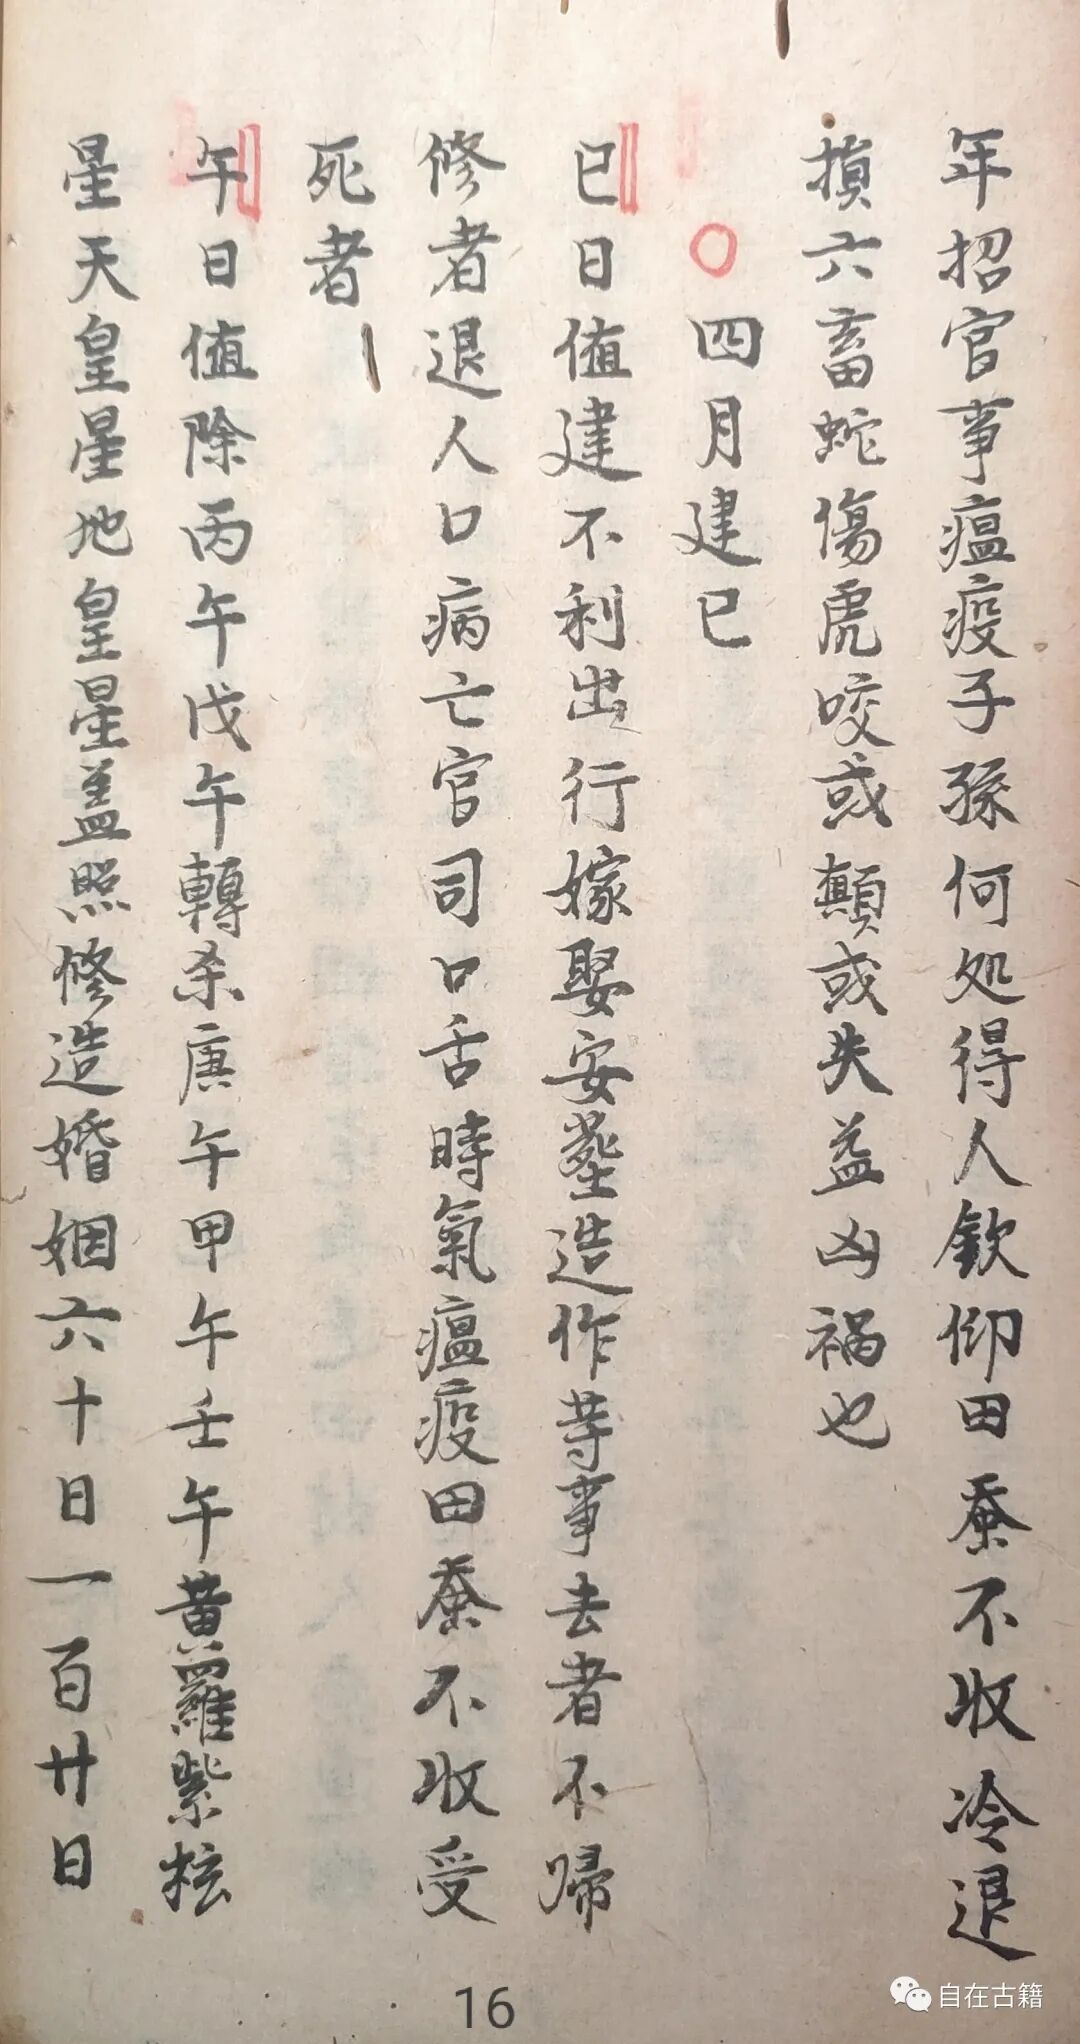 年招官事瘟疫子孫何処得人欽仰田蚕不收冷退
損六畜蛇傷虎咬或顛或失益凶禍也
四月建巳
巳日值建不利出行嫁娶安塟造作等事去者不歸
修者退人口病亡官司口舌時氣瘟疫田蚕不收受
死者
午日值除丙午戊午轉杀庚午甲午壬午黄羅紫柱
星天皇星地皇星盖照修造婚姻六十日一百廿日
16
自在古籍